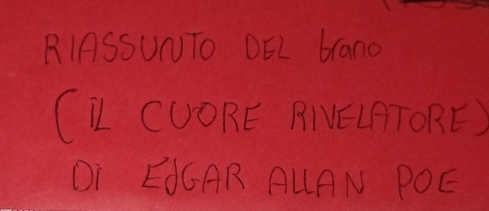 RIASSUNTO DEL brano
(IL CUORE RIVELATORE)
Di EdGAR ALLAN POE